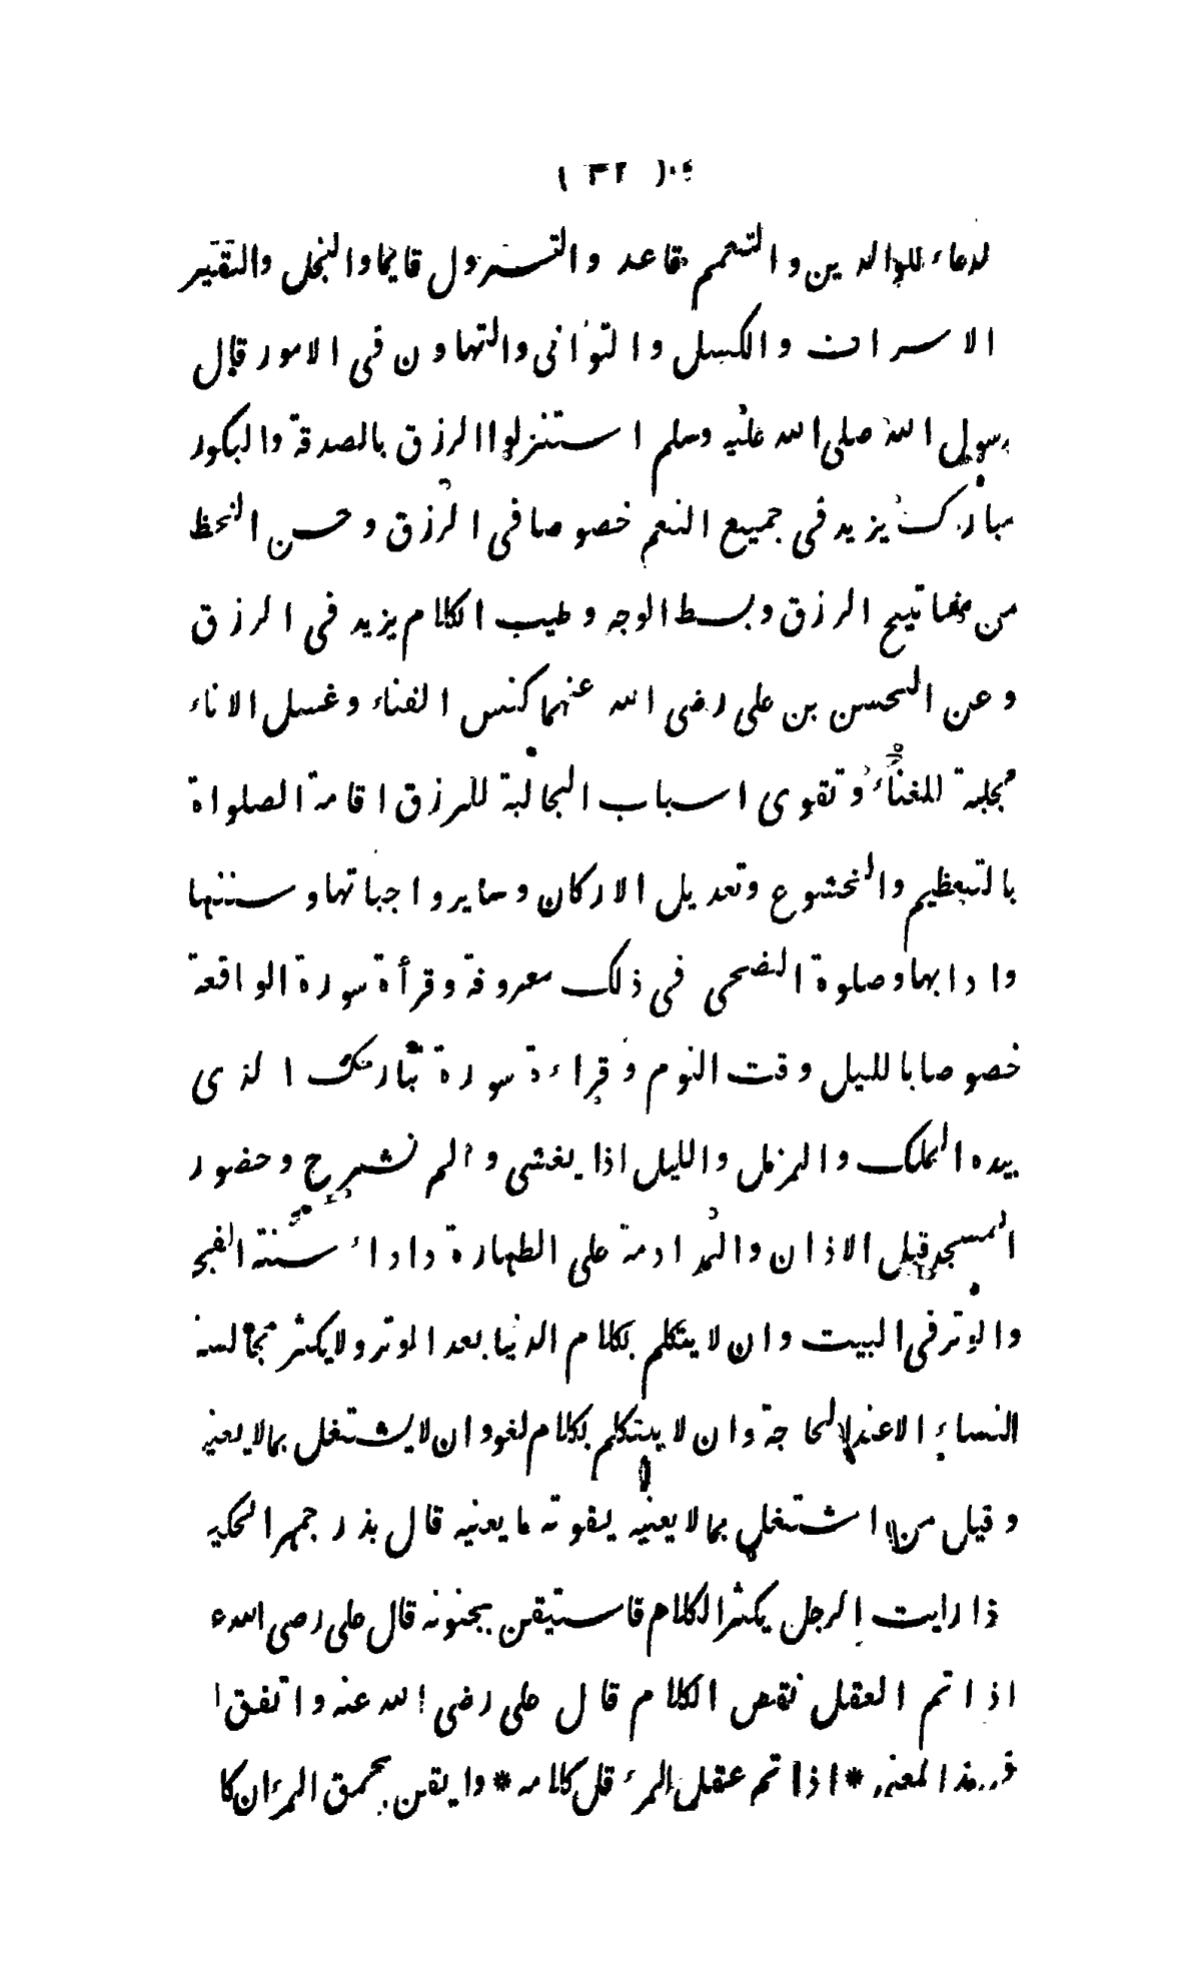 ( ٣٢ )
لدعاء للوالدين والتعمم قاعد والتسرول قايما والبخل والتقتير
الاسراف والكسل والتوانى والتهاون فى الامور قال
رسول الله صلى الله عليه وسلم استنزلوا الرزق بالصدقة والبكور
مبارك يزيد فى جميع النعم خصوصا فى الرزق وحسن الخط
من مفاتيح الرزق وبسط الوجه وطيب الكلام يزيد فى الرزق
وعن الحسن بن على رضى الله عنهما كنس الفناء وغسل الاناء
مجلبة للغناء وتقوى اسباب الجالبة للرزق اقامة الصلواة
بالتعظيم والخشوع وتعديل الاركان وسايرواجباتها وسننها
وادابها وصلوة الضحى فى ذلك معروفة وقرأة سورة الواقعة
خصوصا بالليل وقت النوم وقراءة سورة تبارك الذى
بيده الملك والمزمل والليل اذا يغشى والم نشرح وحضور
المسجد قبل الاذان والمداومة على الطهارة واداء سنة الفجر
والوتر فى البيت وان لا يتكلم بكلام الدنيا بعد الوتر ولا يكثر مجالسة
النساء الا عند الحاجة وان لا يتكلم بكلام لغو وان لا يشتغل بما لا يعنيه
وقيل من اشتغل بما لا يعنيه يفوته ما يعنيه قال بذرجمهر الحكيم
ذا رايت الرجل يكثر الكلام فاستيقن بجنونه قال على رضى الله ع
اذا تم العقل نقص الكلام قال على رضى الله عنه واتفق ا
فى هذا المعنى * اذا تم عقل المرء قل كلامه * وايقن بحمق المرء ان كا